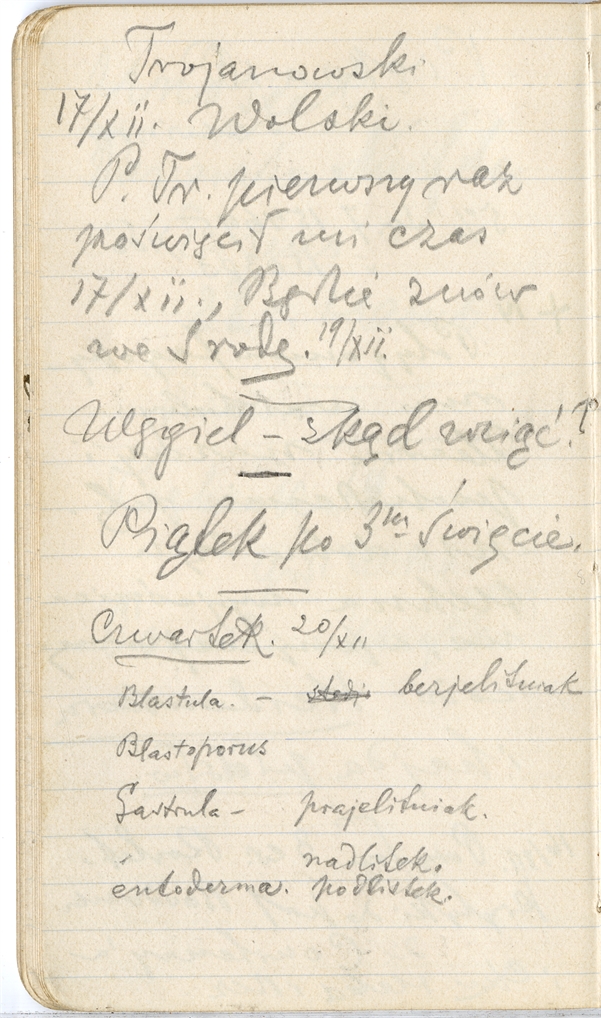 Trojanowski
17/XII. Wolski.
P. Tr. pierwszy raz
poświęcił mi czas
17/XII., Będzie znów
we Środę. 19/XII.
Węgiel – skąd wziąć?
Piątek po 3m Święcie.
Czwartek. 20/XII
Blastula. – bezjelitniak
Blastoporus
Gastrula – prajelitniak.
nadlistek.
entoderma. podlistek.